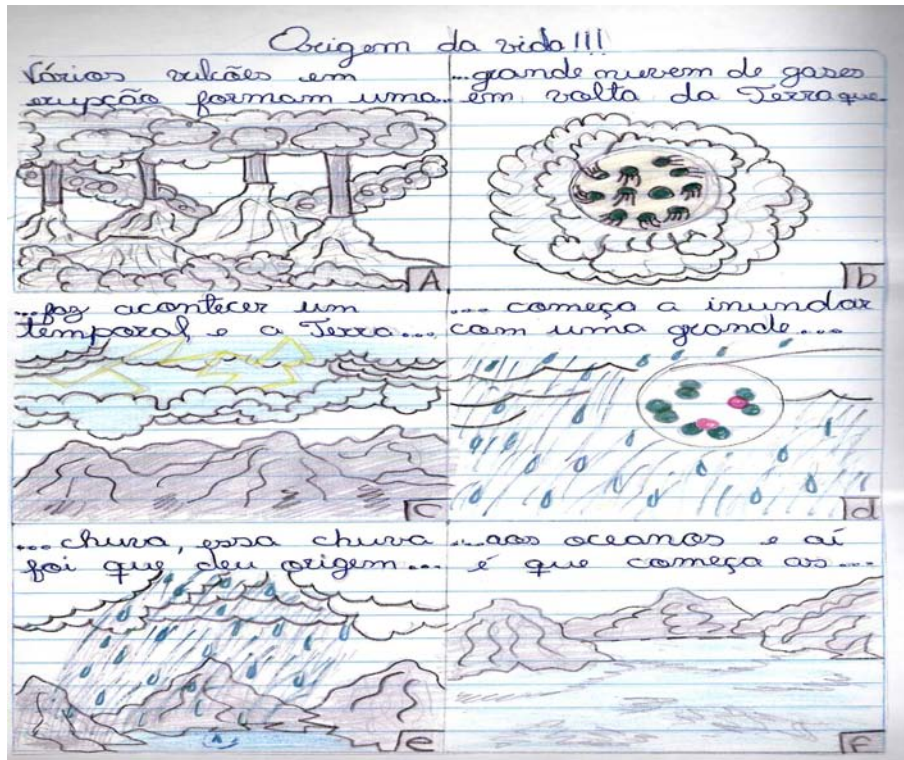 Origem da vida!!!
Vários vulcões em
erupção formam uma...
A
...grande nuvem de gases
em volta da Terra que
b
...faz acontecer um
temporal e a Terra...
c
... começa a inundar
com uma grande...
d
...chuva, essa chuva
foi que deu origem...
e
...aos oceanos e aí
é que começa as...
f